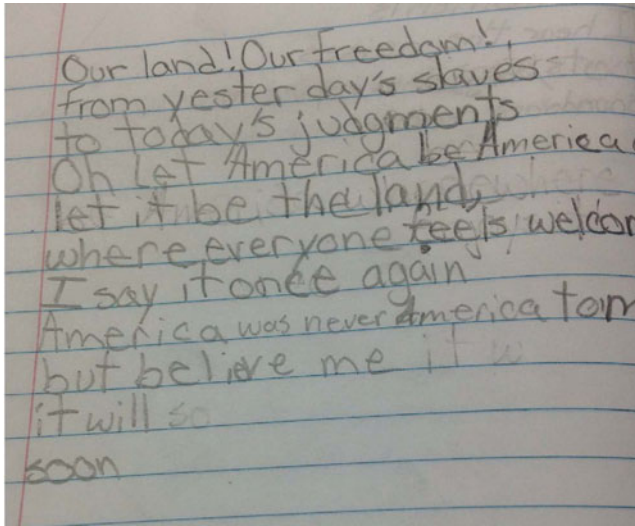 Our land! Our freedom!
from yester day's slaves
to today's judgments
Oh Let America be America
let it be the land,
where everyone feels welcom
I say it once again
America was never America to m
but believe me it w
it will so
soon